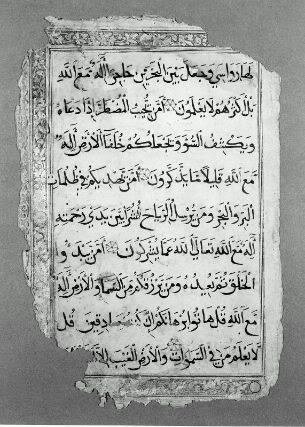 لها رواسي وجعل بين البحرين حاجزا أله مع الله
بل أكثرهم لا يعلمون أمن يجيب المضطر إذا دعاه
ويكشف السوء ويجعلكم خلفاء الأرض أله
مع الله قليلا ما تذكرون أمن يهديكم في ظلمات
البر والبحر ومن يرسل الرياح نشرا بين يدي رحمته
أله مع الله تعالى الله عما يشركون أمن يبدؤا
الخلق ثم يعيده ومن يرزقكم من السماء والأرض أله
مع الله قل هاتوا برهانكم إن كنتم صادقين قل
لا يعلم من في السموات والأرض الغيب